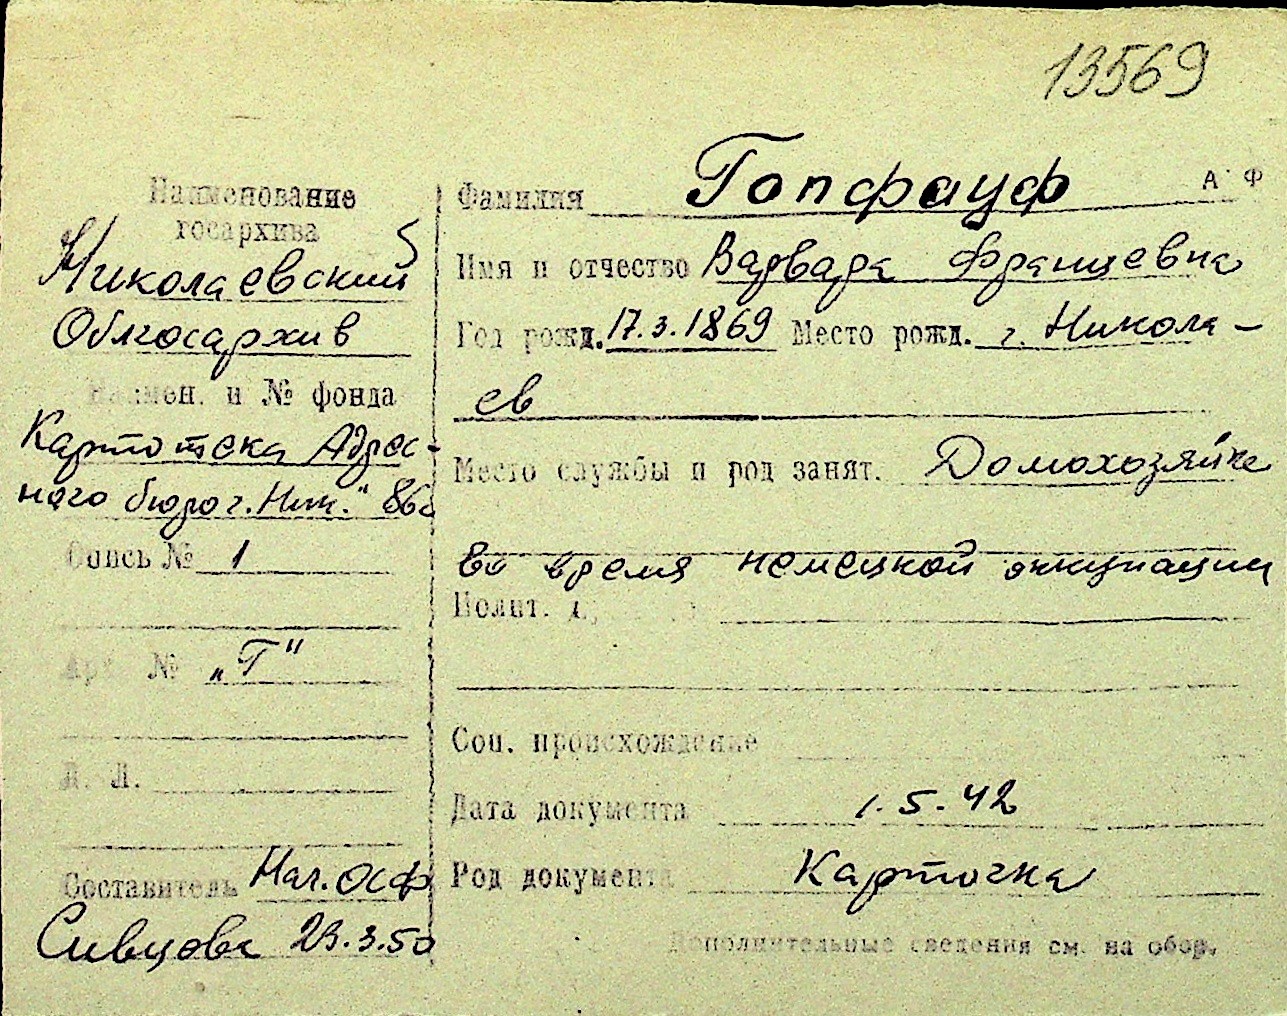 13569
Наименование
госархива
Николаевский
Облгосархив
Наимен. и № фонда
Картотека Адрес-
ного бюро г. Ник." 86
Опись № 1
Арх. № „Г"
Л. Л.
Составитель Нач. ОСФ
Сивцова 23.3.50
Фамилия Гопфауф А Ф
Имя и отчество Варвара Францевна
Год рожд. 17.3.1869 Место рожд. г. Никола-
ев
Место службы и род занят. Домохозяйка
во время немецкой оккупации
Полит.
Соц. происхождение
Дата документа 1.5.42
Род документа Карточка
Дополнительные сведения см. на обор.